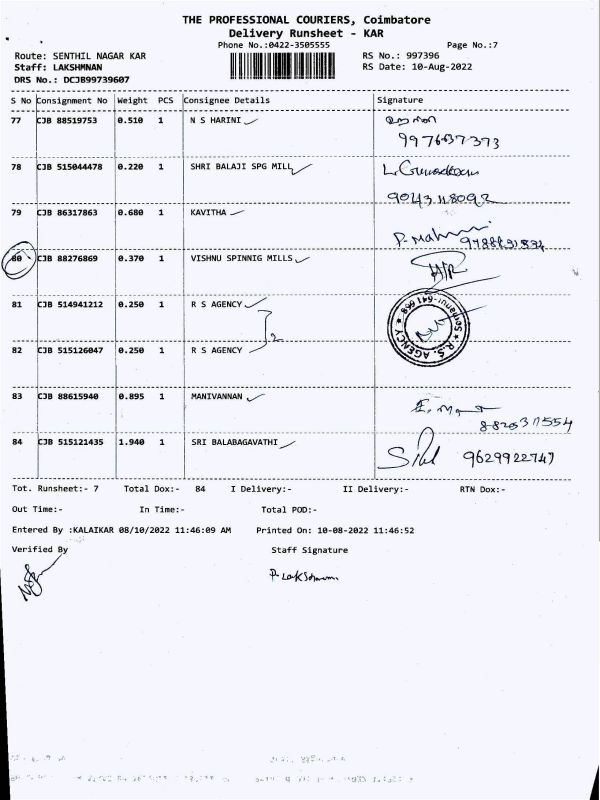 THE PROFESSIONAL COURIERS, Coimbatore
Delivery Runsheet - KAR
Phone No.:0422-3505555 Page No.:7
Route: SENTHIL NAGAR KAR RS No.: 997396
Staff: LAKSHMNAN RS Date: 10-Aug-2022
DRS No.: DCJB99739607
S No Consignment No Weight PCS Consignee Details Signature
77 CJB 88519753 0.510 1 N S HARINI
78 CJB 515044478 0.220 1 SHRI BALAJI SPG MILL
9043118092
79 CJB 86317863 0.680 1 KAVITHA
80 CJB 88276869 0.370 1 VISHNU SPINNIG MILLS
81 CJB 514941212 0.250 1 R S AGENCY
2
R.S. AGENCY
82 CJB 515126047 0.250 1 R S AGENCY
83 CJB 88615940 0.895 1 MANIVANNAN
84 CJB 515121435 1.940 1 SRI BALABAGAVATHI 9629922747
Tot. Runsheet:- 7 Total Dox:- 84 I Delivery:- II Delivery:- RTN Dox:-
Out Time:- In Time:- Total POD:-
Entered By :KALAIKAR 08/10/2022 11:46:09 AM Printed On: 10-08-2022 11:46:52
Verified By Staff Signature